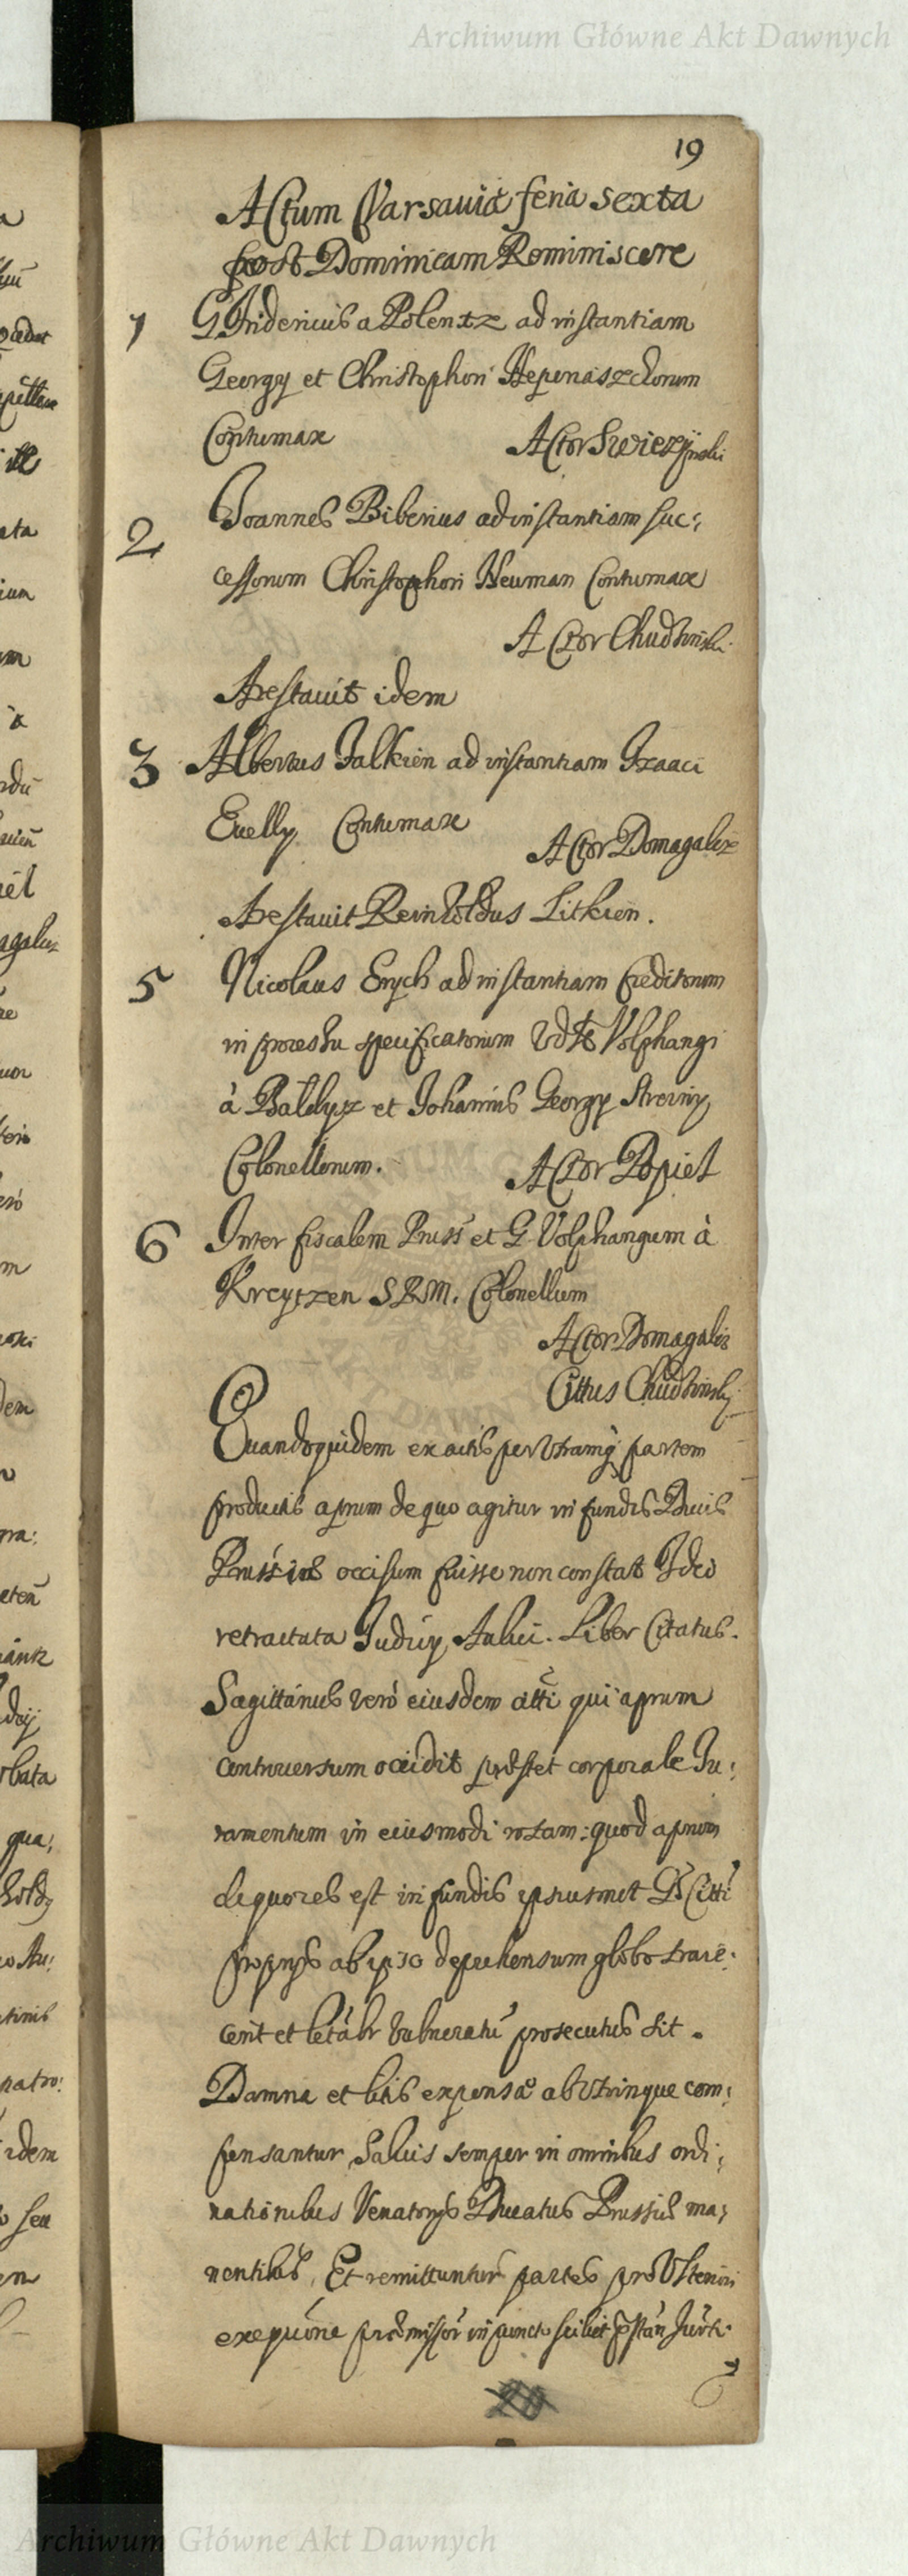 Archiwum Główne Akt Dawnych
19
Actum Varsaviæ feria sexta
post Dominicam Reminiscere
1 G Fridericus a Polentz ad instantiam
Georgy et Christophori
Contumax Actor Swiezÿnski
2 Joannes Biberius ad instantiam suc:
cessorum Christophori Neuman Contumax
Actor Chudzinski
Arestauit idem
3 Albertus Falkien ad instantiam Izaaci
Euelly Contumax
Actor Domagalix
Arestauit Reinholdus Litkien.
5 Nicolaus Erych ad instantiam Creditorum
in processu specificatorum Volphangi
à et Johannis Georgy
Colonellorum. Actor Popiel
6 Inter fiscalem Pruss et G Volphangum à
Kreytzen S R M. Colonellum
Actor Domagalis
Cittus Chudzinsky
Quandoquidem ex actis per Vtramq partem
productis aprum de quo agitur in fundis Ducis
Prussiæ occisum fuisse non constat Ideo
retractata Judicy Aulici. Liber Citatus.
Sagittarius verò eiusdem citti qui aprum
controuersum occidit præstet corporale Iu:
ramentum in eiusmodi rotam: quod aprum
de quo res est in fundis ipsiusmet Gs Citti
proprys ab ipso deprehensum globo traie:
cerit et letalr vulneratu prosecutus sit.
Damna et litis expensæ ab Vtrinque com:
pensantur, Saluis semper in omnibus ordi:
nationibus Venatorys Ducatus Prussiæ ma:
nentibus, Et remittuntur partes pro Vlteriori
exequóne præmissor in puncto scilicet pstan Jurti.